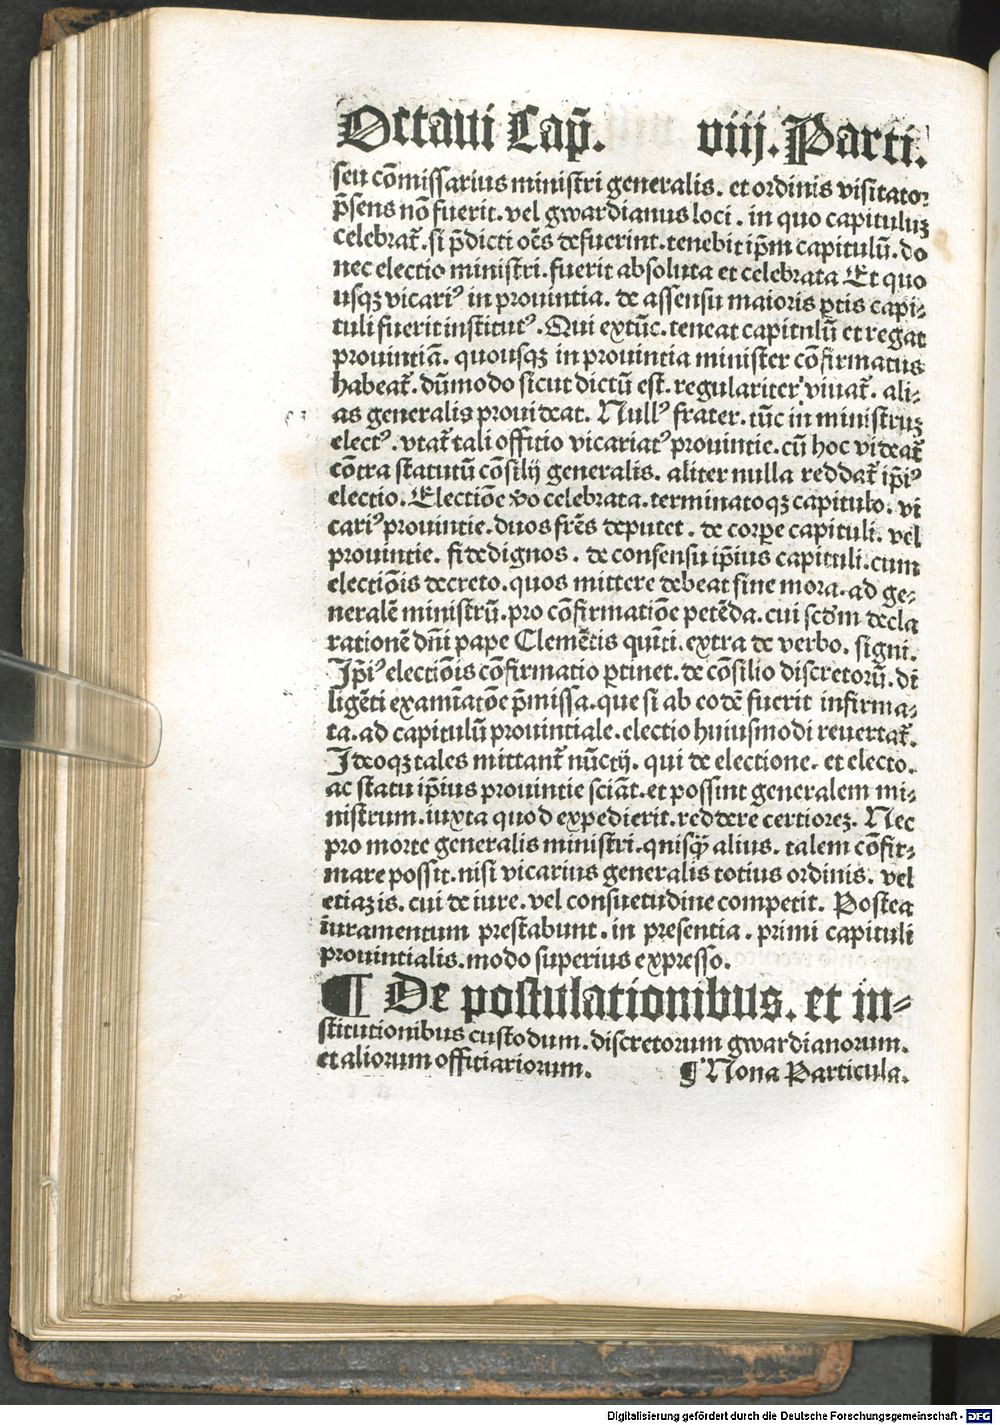 Octaui Cap̄. viij. Parti.
seu cōmissarius ministri generalis. et ordinis visitator
p̄sens nō fuerit. vel gwardianus loci. in quo capituluꝫ
celebrat᷑. si p̄dicti oēs defuerint. tenebit ip̄m capitulū. do
nec electio ministri. fuerit absoluta et celebrata Et quo
usqꝫ vicariꝰ in prouintia. de assensu maioris ꝑtis capi⸗
tuli fuerit institutꝰ. Qui extūc. teneat capitulū et regat
prouintiā. quousqꝫ in prouintia minister cōfirmatus
habeat᷑. dūmodo sicut dictū est. regulariter viuat᷑. ali⸗
as generalis prouideat. Nullꝰ frater. tūc in ministruꝫ
electꝰ. vtat᷑ tali offitio vicariatꝰ prouintie. cū hoc videat᷑
cōtra statutū cōsilij generalis. aliter nulla reddat᷑ ip̄iꝰ
electio. Electiōe v̊o celebrata. terminatoqꝫ capitulo. vi
cariꝰ prouintie. duos fr̄es deputet. de corꝑe capituli. vel
prouintie. fidedignos. de consensu ip̄ius capituli. cum
electiōis decreto. quos mittere debeat sine mora. ad ge⸗
neralē ministrū. pro cōfirmatiōe petēda. cui scd̄m decla
rationē dn̄i pape Clemētis quīti. extra de verbo. signi.
Ip̄iꝰ electiōis cōfirmatio ꝑtinet. de cōsilio discretorū. di
ligēti examīatōe p̄missa. que si ab eodē fuerit infirma⸗
ta. ad capitulū prouintiale. electio huiusmodi reuertat᷑.
Ideoqꝫ tales mittant᷑ nūctij. qui de electione. et electo.
ac statu ip̄ius prouintie sciāt. et possint generalem mi⸗
nistrum. iuxta quod expedierit. reddere certioreꝫ. Nec
pro morte generalis ministri. quisq̄ȝ alius. talem cōfir⸗
mare possit. nisi vicarius generalis totius ordinis. vel
etiaꝫ is. cui de iure. vel consuetudine competit. Postea
iuramentum prestabunt. in presentia. primi capituli
prouintialis. modo superius expresso.
¶ De postulationibus. et in⸗
stitutionibus custodum. discretorum gwardianorum.
et aliorum offitiariorum. ¶ Nona Particula.
Digitalisierung gefördert durch die Deutsche Forschungsgemeinschaft - DFG